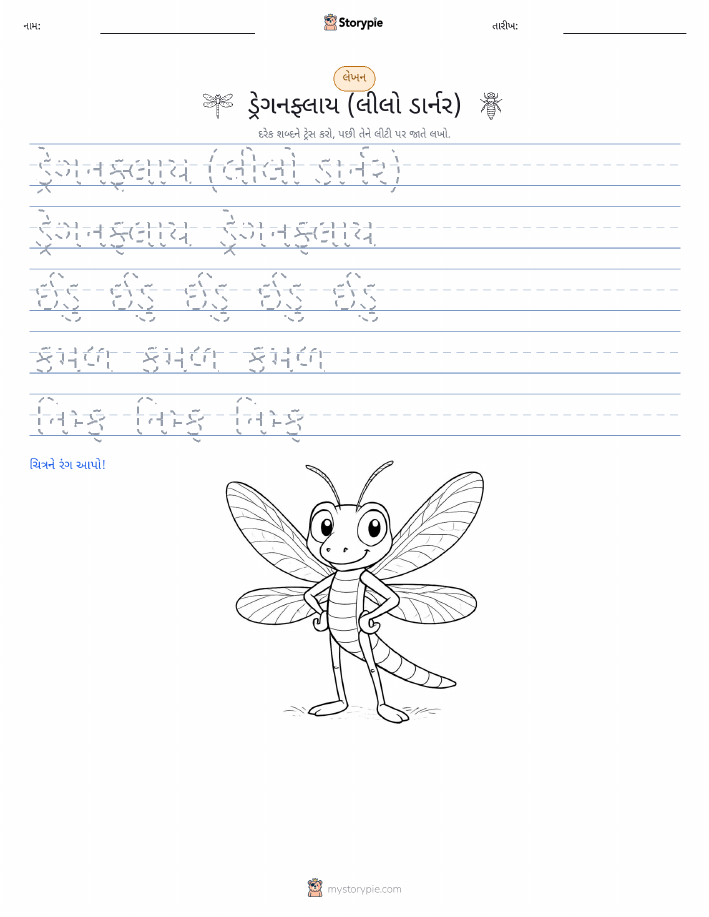 નામ:
Storypie
તારીખ:
લેખન
ડ્રેગનફ્લાય (લીલો ડાર્નર)
દરેક શબ્દને ટ્રેસ કરો, પછી તેને લીટી પર જાતે લખો.
ડ્રેગનફ્લાય (લીલો ડાર્નર)
ડ્રેગનફ્લાય ડ્રેગનફ્લાય
ઈંડું ઈંડું ઈંડું ઈંડું ઈંડું
કમળ કમળ કમળ
નિમ્ફ નિમ્ફ નિમ્ફ
ચિત્રને રંગ આપો!
mystorypie.com